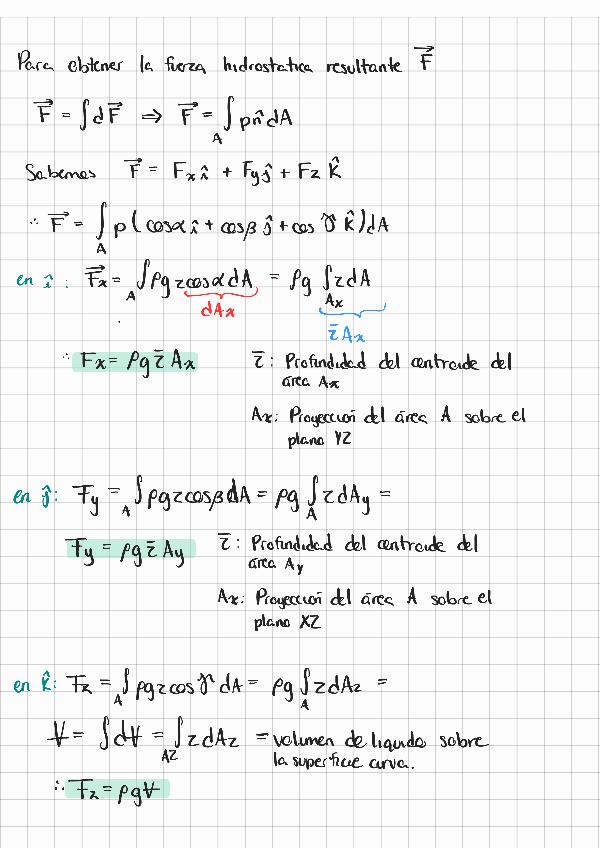 Para obtener la fuerza hidrostatica resultante F⃗
F⃗ = ∫dF⃗ ⇒ F⃗ = ∫_A p n̂ dA
Sabemos F⃗ = Fx î + Fy ĵ + Fz k̂
∴ F⃗ = ∫_A p (cosα î + cosβ ĵ + cos γ k̂) dA
en î : F⃗x = ∫_A ρg z cosα dA = ρg ∫_Ax z dA
dAx
z̄ Ax
∴ Fx = ρg z̄ Ax z̄ : Profundidad del centroide del
área Ax
Ax: Proyección del área A sobre el
plano YZ
en ĵ : Fy = ∫_A ρg z cosβ dA = ρg ∫_A z dAy =
Fy = ρg z̄ Ay z̄ : Profundidad del centroide del
área Ay
Ax: Proyección del área A sobre el
plano XZ
en k̂ : Fz = ∫_A ρg z cos γ dA = ρg ∫_A z dAz =
V = ∫dV = ∫_AZ z dAz = volumen de liquido sobre
la superficie curva.
∴ Fz = ρgV